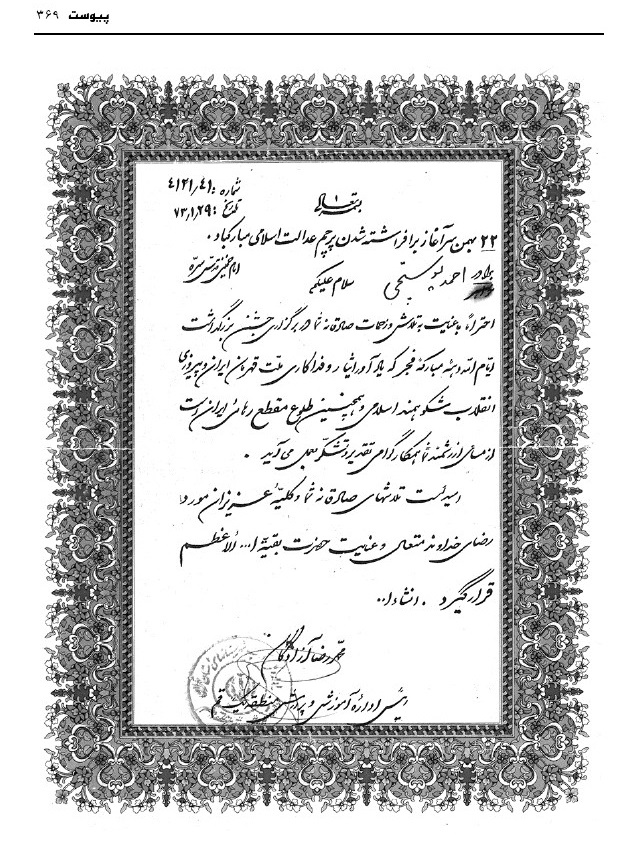 پیوست ۳۶۹
شماره : ۴۱۲۱٫۴۱
بسمه تعالی
تاریخ : ۷۳٫۱٫۲۹
۲۲ بهمن سرآغاز برافراشته شدن پرچم عدالت اسلامی مبارکباد .
امام خمینی قدس سره
برادر احمد سلام علیکم
احتراماً باعنایت به تلاش و زحمات صادقانه شما در برگزاری جشن بزرگداشت
ایام الله دهه مبارکه فجر که یادآور ایثار و فداکاری ملت قهرمان ایران و پیروزی
انقلاب شکوهمند اسلامی و همچنین طلوع مقطع رهائی ایران است
از مساعی ارزشمند شما همکار گرامی تقدیر و تشکر بعمل می آید .
امید است تلاشهای صادقانه شما و کلیه عزیزان مورد
رضای خداوند متعال و عنایت حضرت بقیة ا... الاعظم
قرار گیرد . انشاءا...
محمدرضا آزادگان
رئیس اداره آموزش و پرورش منطقه یک قم